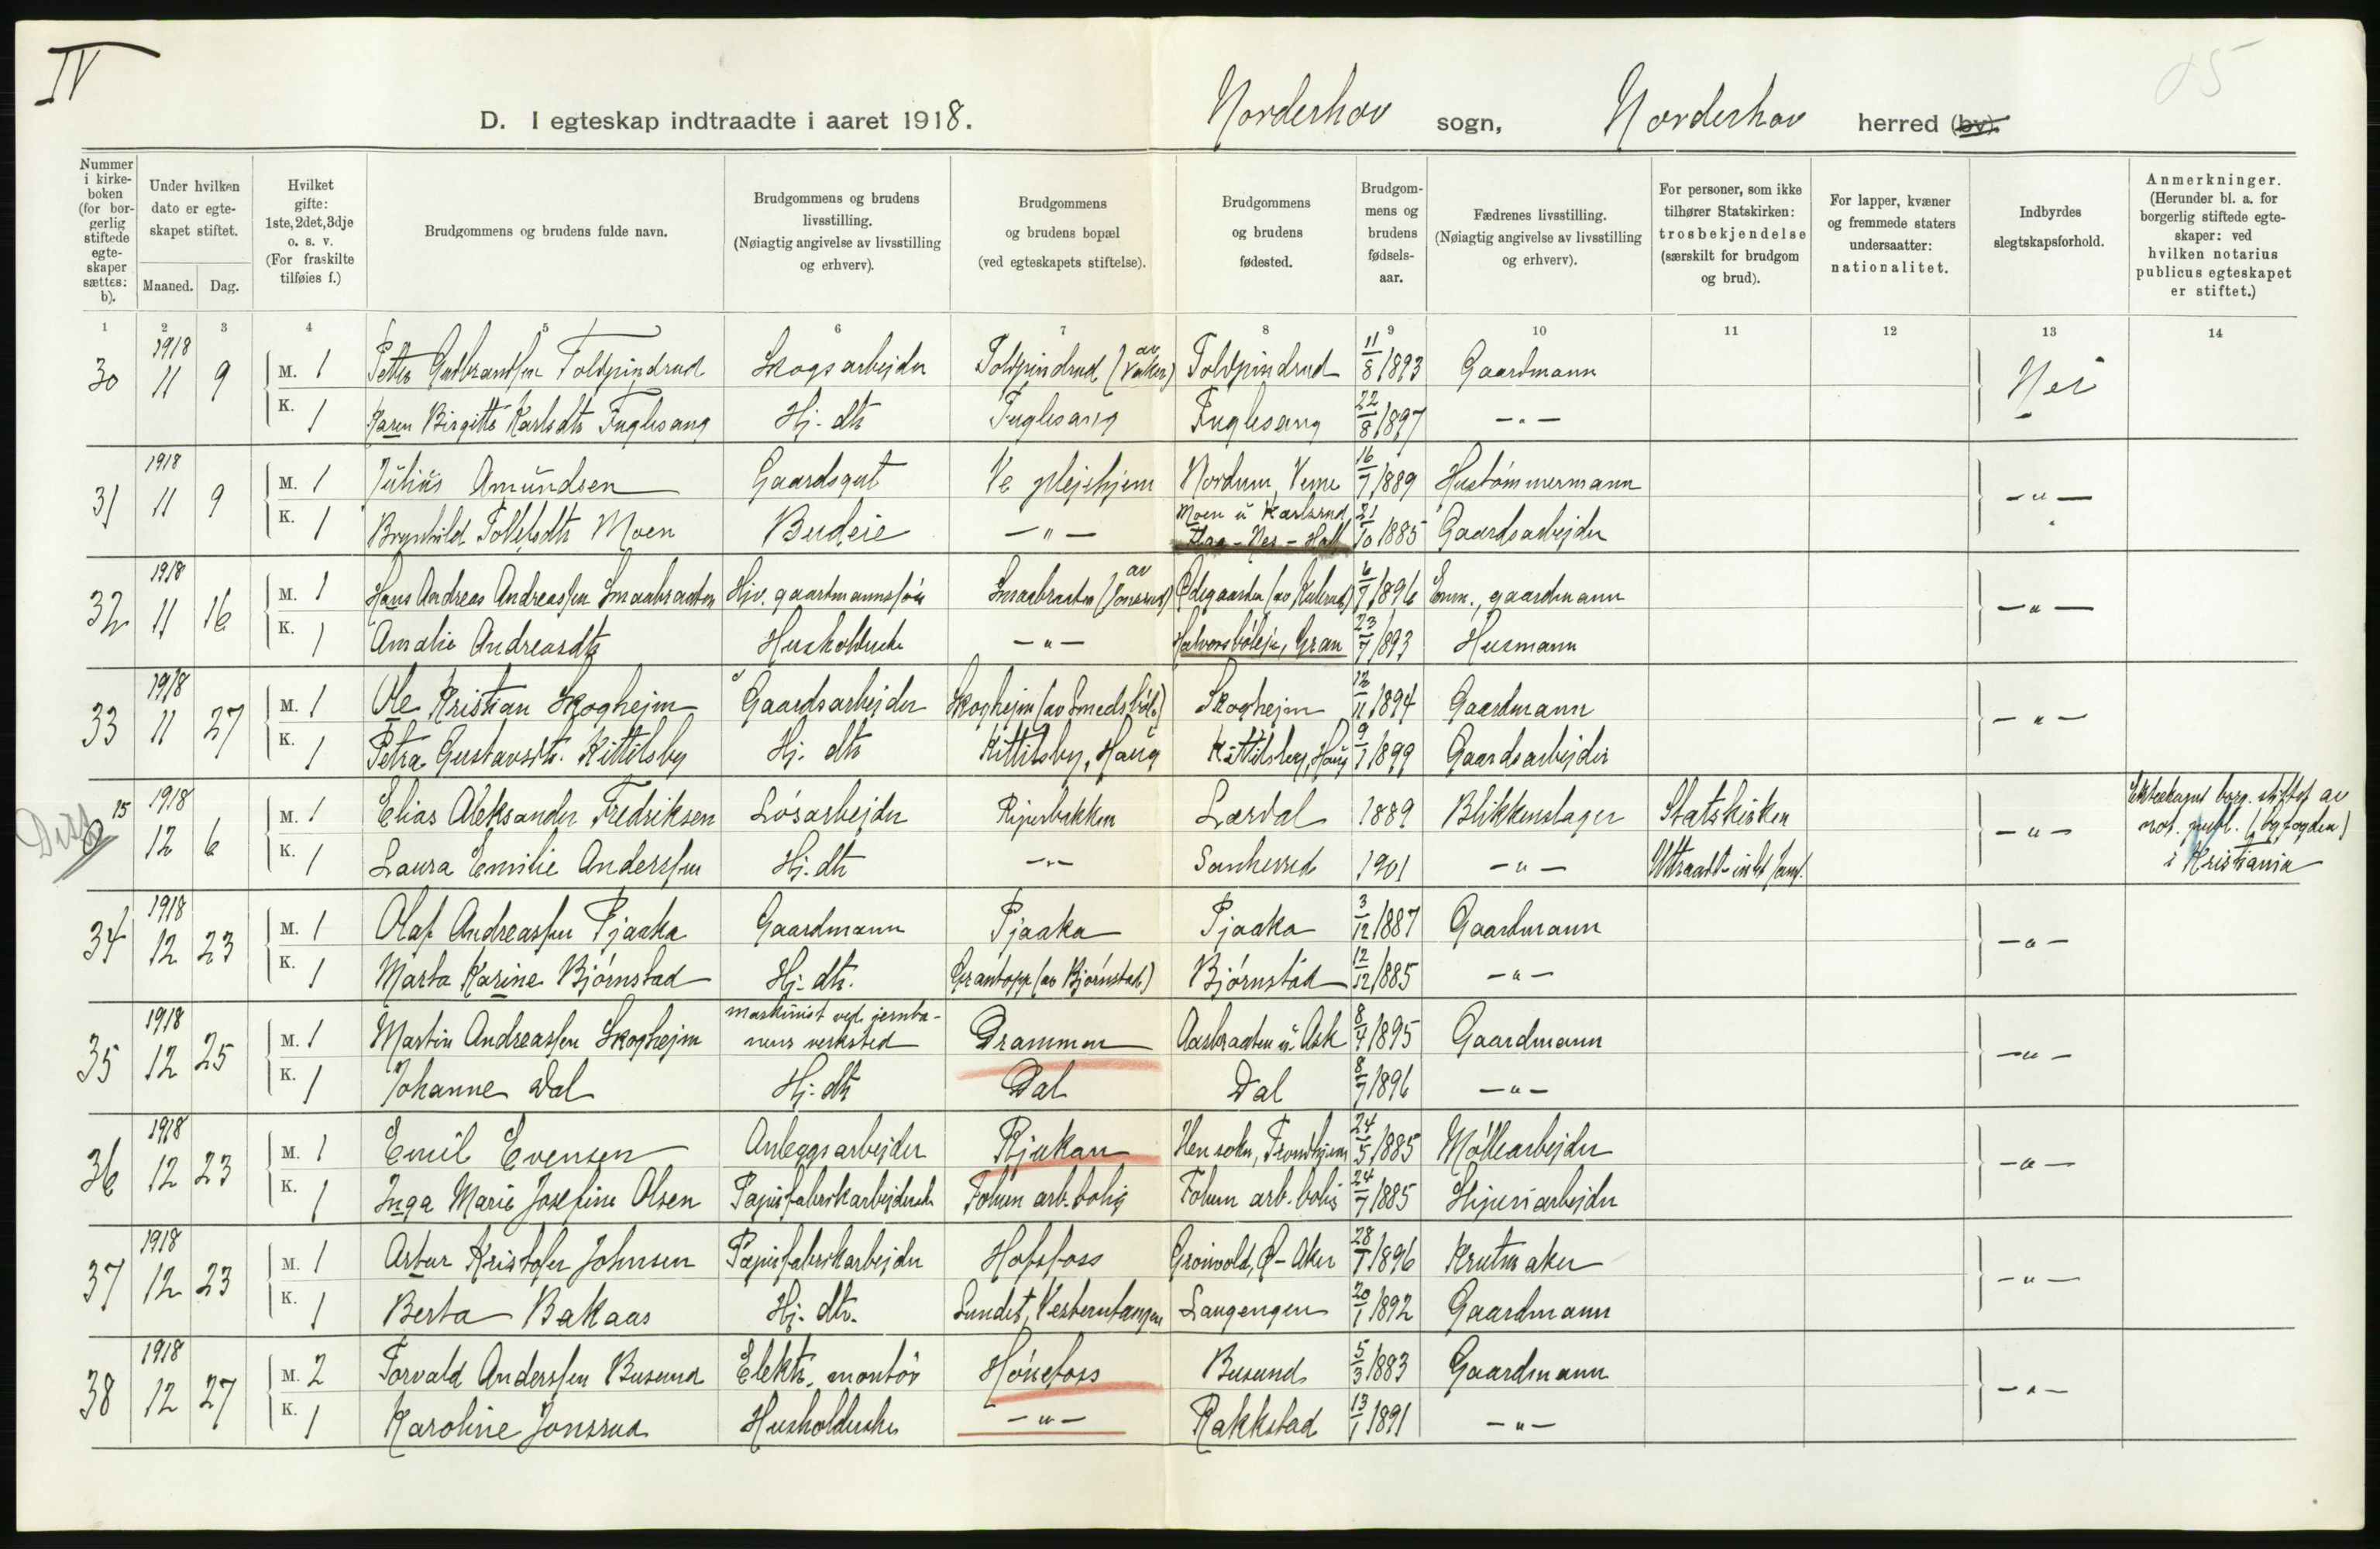 IV
D. I egteskap indtraadte i aaret 1918.
Norderhov sogn, Norderhov herred (by).
Nummer i kirkeboken (for borgerlig stiftede egteskaper sættes: b).
Under hvilken dato er egteskapet stiftet.
Maaned. Dag.
Hvilket gifte: 1ste, 2det, 3dje o. s. v. (For fraskilte tilføies f.)
Brudgommens og brudens fulde navn.
Brudgommens og brudens livsstilling. (Nøiagtig angivelse av livsstilling og erhverv).
Brudgommens og brudens bopæl (ved egteskapets stiftelse).
Brudgommens og brudens fødested.
Brudgommens og brudens fødselsaar.
Fædrenes livsstilling. (Nøiagtig angivelse av livsstilling og erhverv).
For personer, som ikke tilhører Statskirken: trosbekjendelse (særskilt for brudgom og brud).
For lapper, kvæner og fremmede staters undersaatter: nationalitet.
Indbyrdes slegtskapsforhold.
Anmerkninger. (Herunder bl. a. for borgerlig stiftede egteskaper: ved hvilken notarius publicus egteskapet er stiftet.)
1 2 3 4 5 6 7 8 9 10 11 12 13 14
30 1918 11 9 M. 1 Skogsarbejder 11/8 1893 Gaardmann Nei
K. 1 Karen Birgitte Karlsdtr Fuglesang Hj. dtr Fuglesang Fuglesang 22/8 1897 -"-
31 1918 11 9 M. 1 Julius Amundsen Gaardsgut Ve plejehjem Nordrum, Veme 16/7 1889 Hustömmermann -"-
K. 1 Moen Budeie -"- Moen u Karlsrud 21/10 1885 Gaardsarbejder
32 1918 11 16 M. 1 Hans Andreas Andreassen Smaabraaten Hjv. gaardmannssön 6/7 1896 Em., gaardmann -"-
K. 1 Amalie Andreasdtr Husholderske -"- Gran 23/7 1893 Husmann
33 1918 11 27 M. 1 Ole Kristian Skoghejm Gaardsarbejder Skoghejm (av Smedsböl) Skoghejm 12/11 1894 Gaardmann -"-
K. 1 Petra Gustavsdtr. Kittilsby Hj. dtr Kittilsby, Haug Kittilsby, Haug 9/1 1899 Gaardsarbejder
15 1918 12 6 M. 1 Elias Aleksander Fredriksen Lösarbejder Lærdal 1889 Blikkenslager Statskirken -"- Ekteskapet borg. stiftet av
K. 1 Laura Emilie Anderssen Hj. dtr -"- Sanherred 1901 -"- not. publ. (byfogden)
i Kristiania
34 1918 12 23 M. 1 Olaf Andreassen Pjaaka Gaardmann Pjaaka Pjaaka 3/12 1887 Gaardmann -"-
K. 1 Marta Karine Björnstad Hj. dtr. Grantopp (av Björnstad) Björnstad 12/12 1885 -"-
35 1918 12 25 M. 1 Martin Andreassen Skoghejm maskinist ved jernbanens verksted Drammen Aasbraaten u. Ask 8/4 1895 Gaardmann -"-
K. 1 Johanne Dal Hj. dtr Dal Dal 8/7 1896 -"-
36 1918 12 23 M. 1 Emil Evensen Anleggsarbejder Rjukan Hen sokn, Trondhjem 24/5 1885 Möllearbejder -"-
K. 1 Inga Marie Josefine Olsen Papirfabrikarbejderske Folum arb. bolig Folum arb. bolig 24/7 1885 Sliperiarbejder
37 1918 12 23 M. 1 Artur Kristofer Johnsen Papirfabrikarbejder Hofsfoss Grönvold, Ø-Aker 28/1 1896 Krutmaker -"-
K. 1 Berta Bakaas Hj. dtr. Sundet, Vesterntangen Langengen 20/1 1892 Gaardmann
38 1918 12 27 M. 2 Torvald Anderssen Busund Elektr. montör Hönefoss Busund 5/3 1883 Gaardmann -"-
K. 1 Karoline Jonsrud Husholderske -"- Rakkestad 13/1 1891 -"-